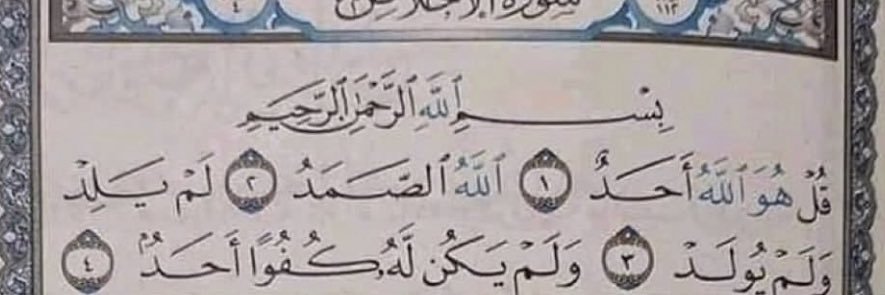 سورة الإخلاص
بِسْمِ ٱللَّهِ ٱلرَّحْمَٰنِ ٱلرَّحِيمِ
قُلْ هُوَ ٱللَّهُ أَحَدٌ ١ ٱللَّهُ ٱلصَّمَدُ ٢ لَمْ يَلِدْ
وَلَمْ يُولَدْ ٣ وَلَمْ يَكُن لَّهُۥ كُفُوًا أَحَدٌۢ ٤